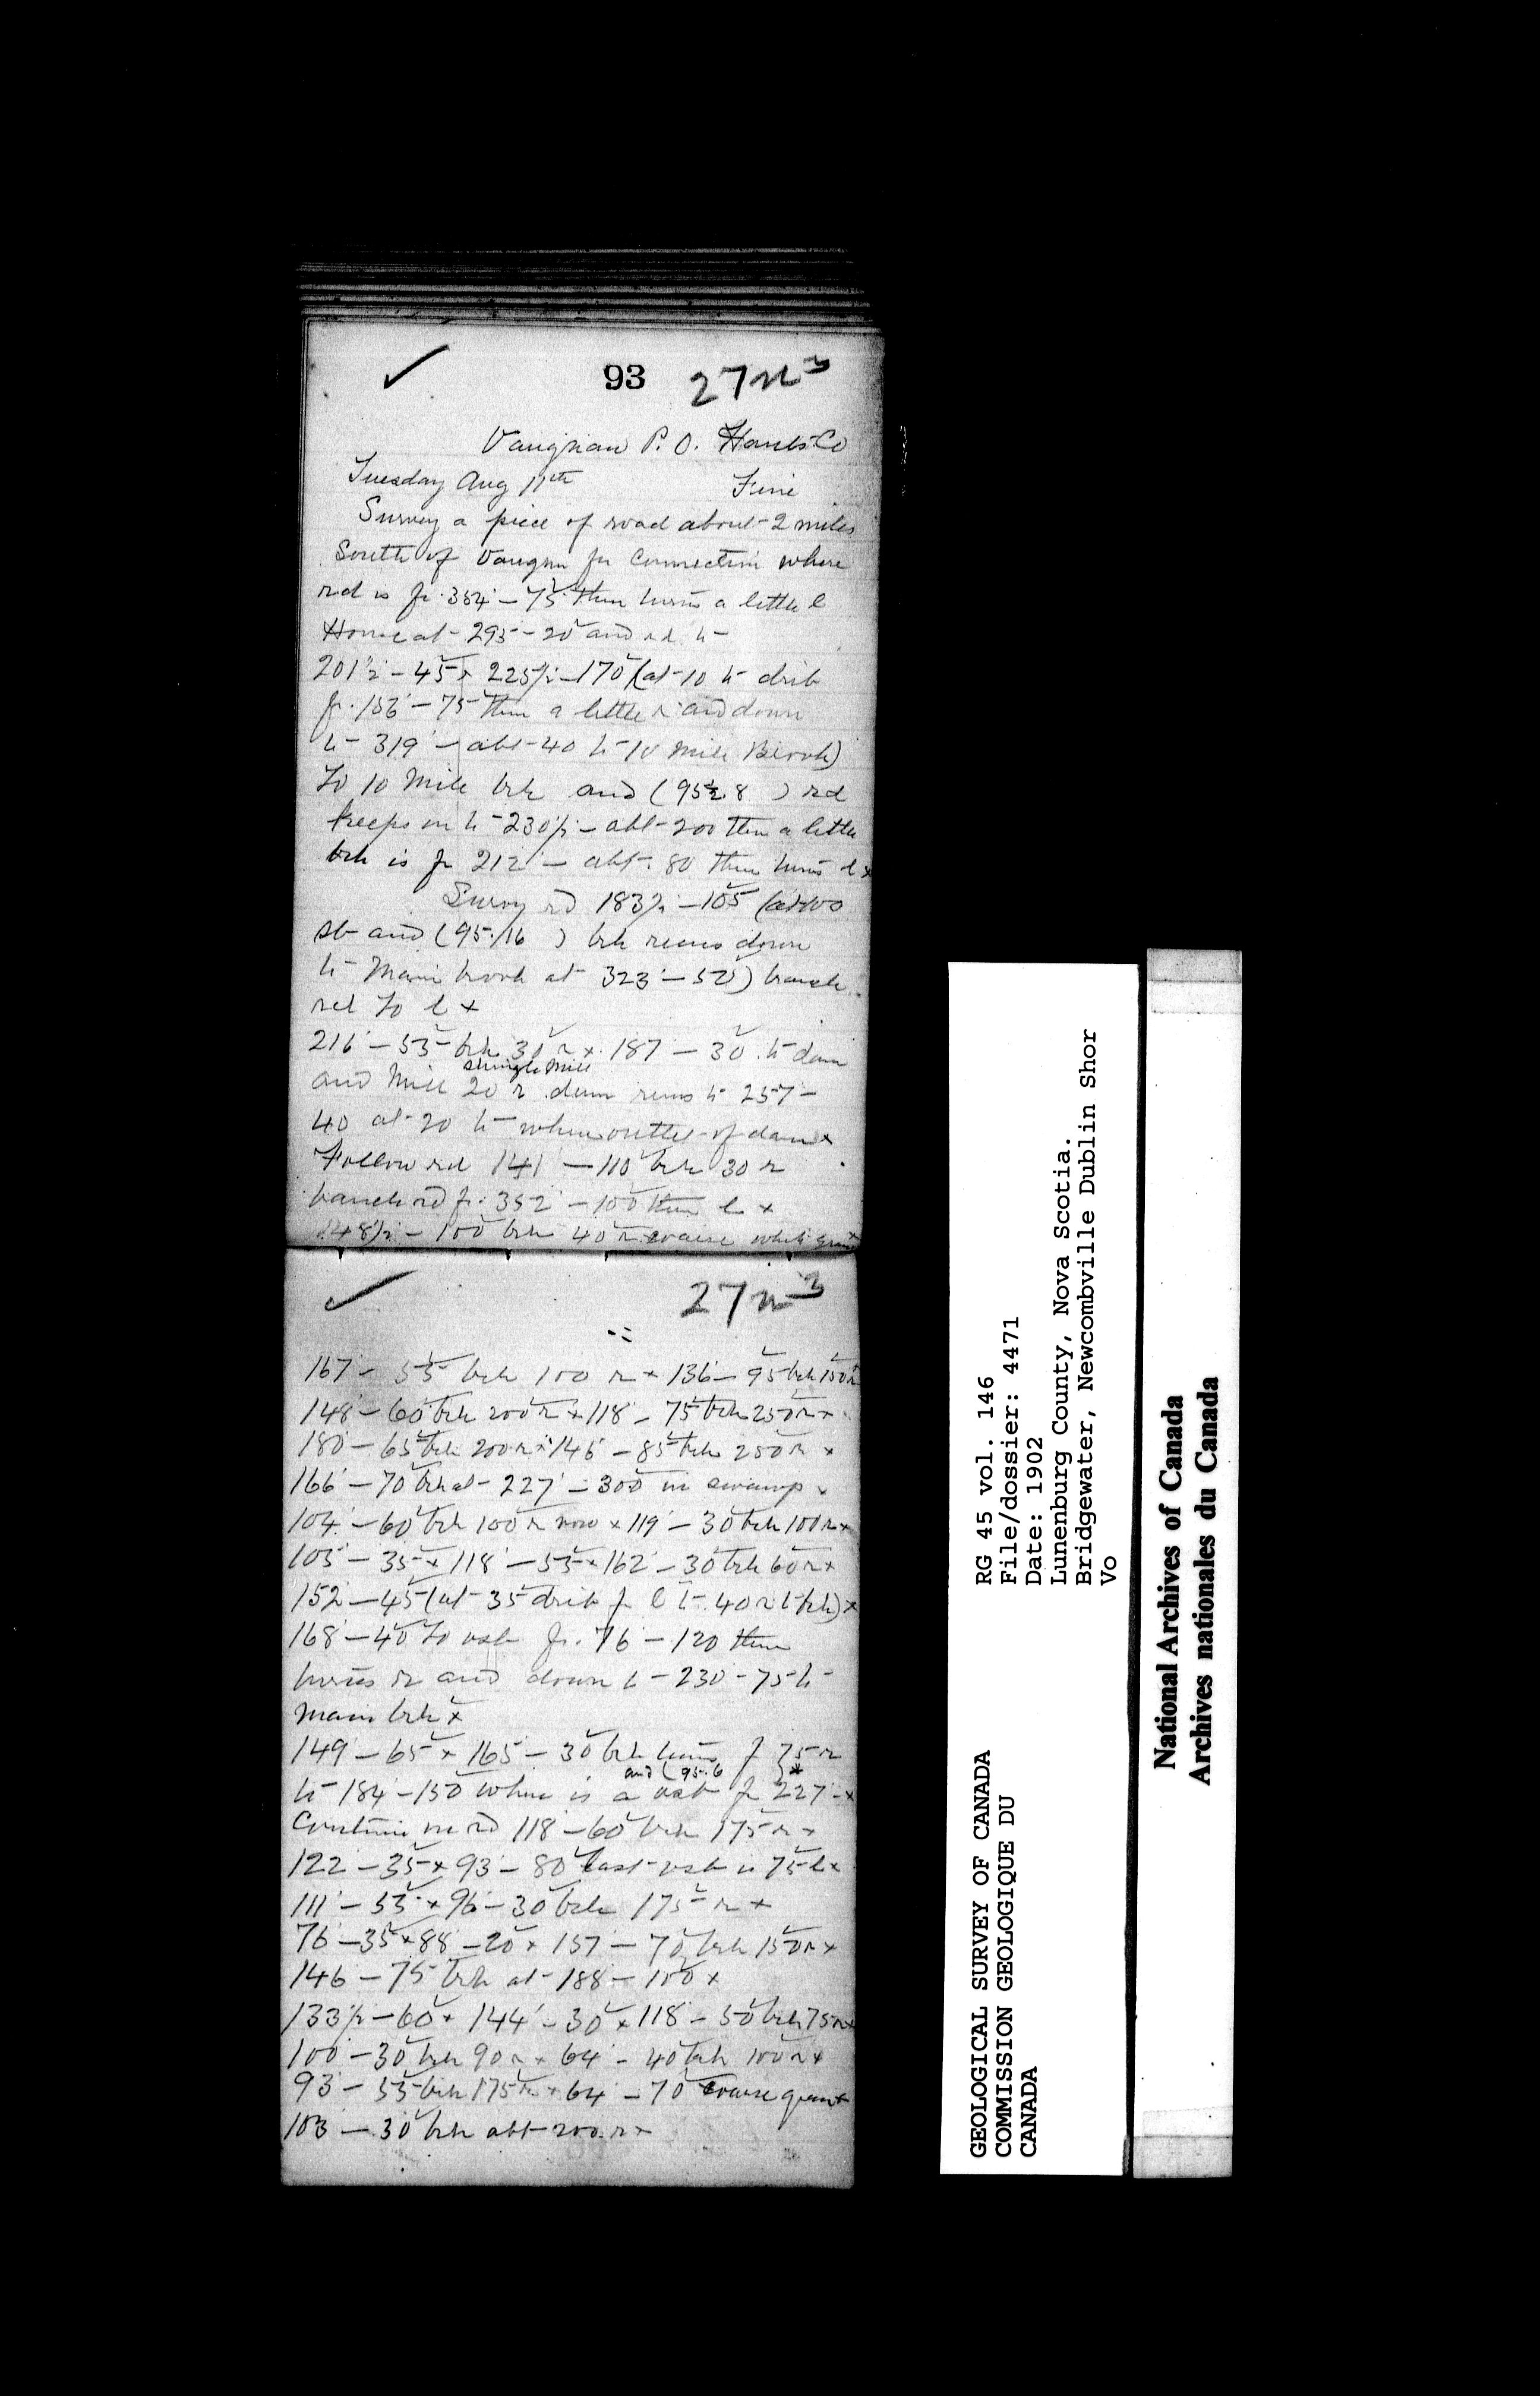 93 27
Vaughan P. O. Hants Co
Tuesday Aug 11th Fine
Survey a piece of road about 2 miles
South of Vaughn for Connection where
rd is fr. 354 - 75 then turns a little l
House at 295 - 20 and rd to
201½ - 45 x 225½ - 170 (at 10 to drib
fr. 156 - 75 then a little r and down
to 319 - abt 40 to 10 Mile Brook)
To 10 Mile brk and (95½.8 ) rd
keeps on to 230½ - abt 200 then a little
brk is fr 212 - abt 80 then turns l x
Survey rd 183½ - 105 (at 100
st and (95.16 ) brk runs down
to Main brook at 323 - 50) branch
rd To l x
216 - 55 brk 30 r x 187 - 30 to dam
shingle Mill
and Mill 20 r dam runs to 257 -
40 at 20 to where outlet of dam x
Follow rd 141 - 110 brk 30 r
branch rd fr. 352 - 100 then l x
148½ - 100 brk 40 r coarse white gran
27
167 - 55 brk 100 r x 136 - 95 brk 150 r
148 - 60 brk 200 r x 118 - 75 brk 250 r x
180 - 65 brk 200 r x 146 - 85 brk 250 r x
166 - 70 brk at 227 - 300 in swamp x
104 - 60 brk 100 r now x 119 - 30 brk 100 r x
105 - 35 x 118 - 55 x 162 - 30 brk 60 r x
152 - 45 (at 35 drib fr l to 40 r to brk) x
168 - 40 To vsb fr. 76 - 120 then
turns r and down to 230 - 75 to
main brk x
149 - 65 x 165 - 30 brk turns fr 75 r
and (95.6 ) x
to 184 - 150 where is a vsb fr 227 - x
Continue on rd 118 - 60 brk 175 r x
122 - 35 x 93 - 80 last vsb is 75 l x
111 - 55 x 96 - 30 brk 175 r x
76 - 35 x 88 - 20 x 157 - 70 brk 150 r x
146 - 75 brk at 188 - 100 x
133½ - 60 x 144 - 30 x 118 - 50 brk 75 r x
100 - 30 brk 90 r x 64 - 40 brk 100 r x
93 - 55 brk 175 r x 64 - 70 coarse gran x
103 - 30 brk abt 200 r x
GEOLOGICAL SURVEY OF CANADA
COMMISSION GEOLOGIQUE DU
CANADA
RG 45 vol. 146
File/dossier: 4471
Date: 1902
Lunenburg County, Nova Scotia.
Bridgewater, Newcombville Dublin Shor
Vo
National Archives of Canada
Archives nationales du Canada